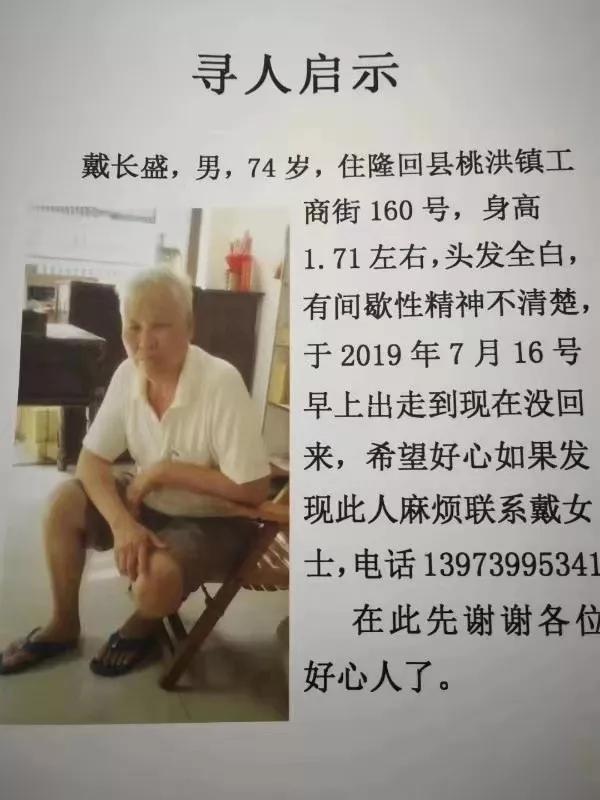 寻人启示
戴长盛，男，74岁，住隆回县桃洪镇工
商街160号，身高
1.71左右，头发全白，
有间歇性精神不清楚，
于2019年7月16号
早上出走到现在没回
来，希望好心如果发
现此人麻烦联系戴女
士，电话13973995341
在此先谢谢各位
好心人了。